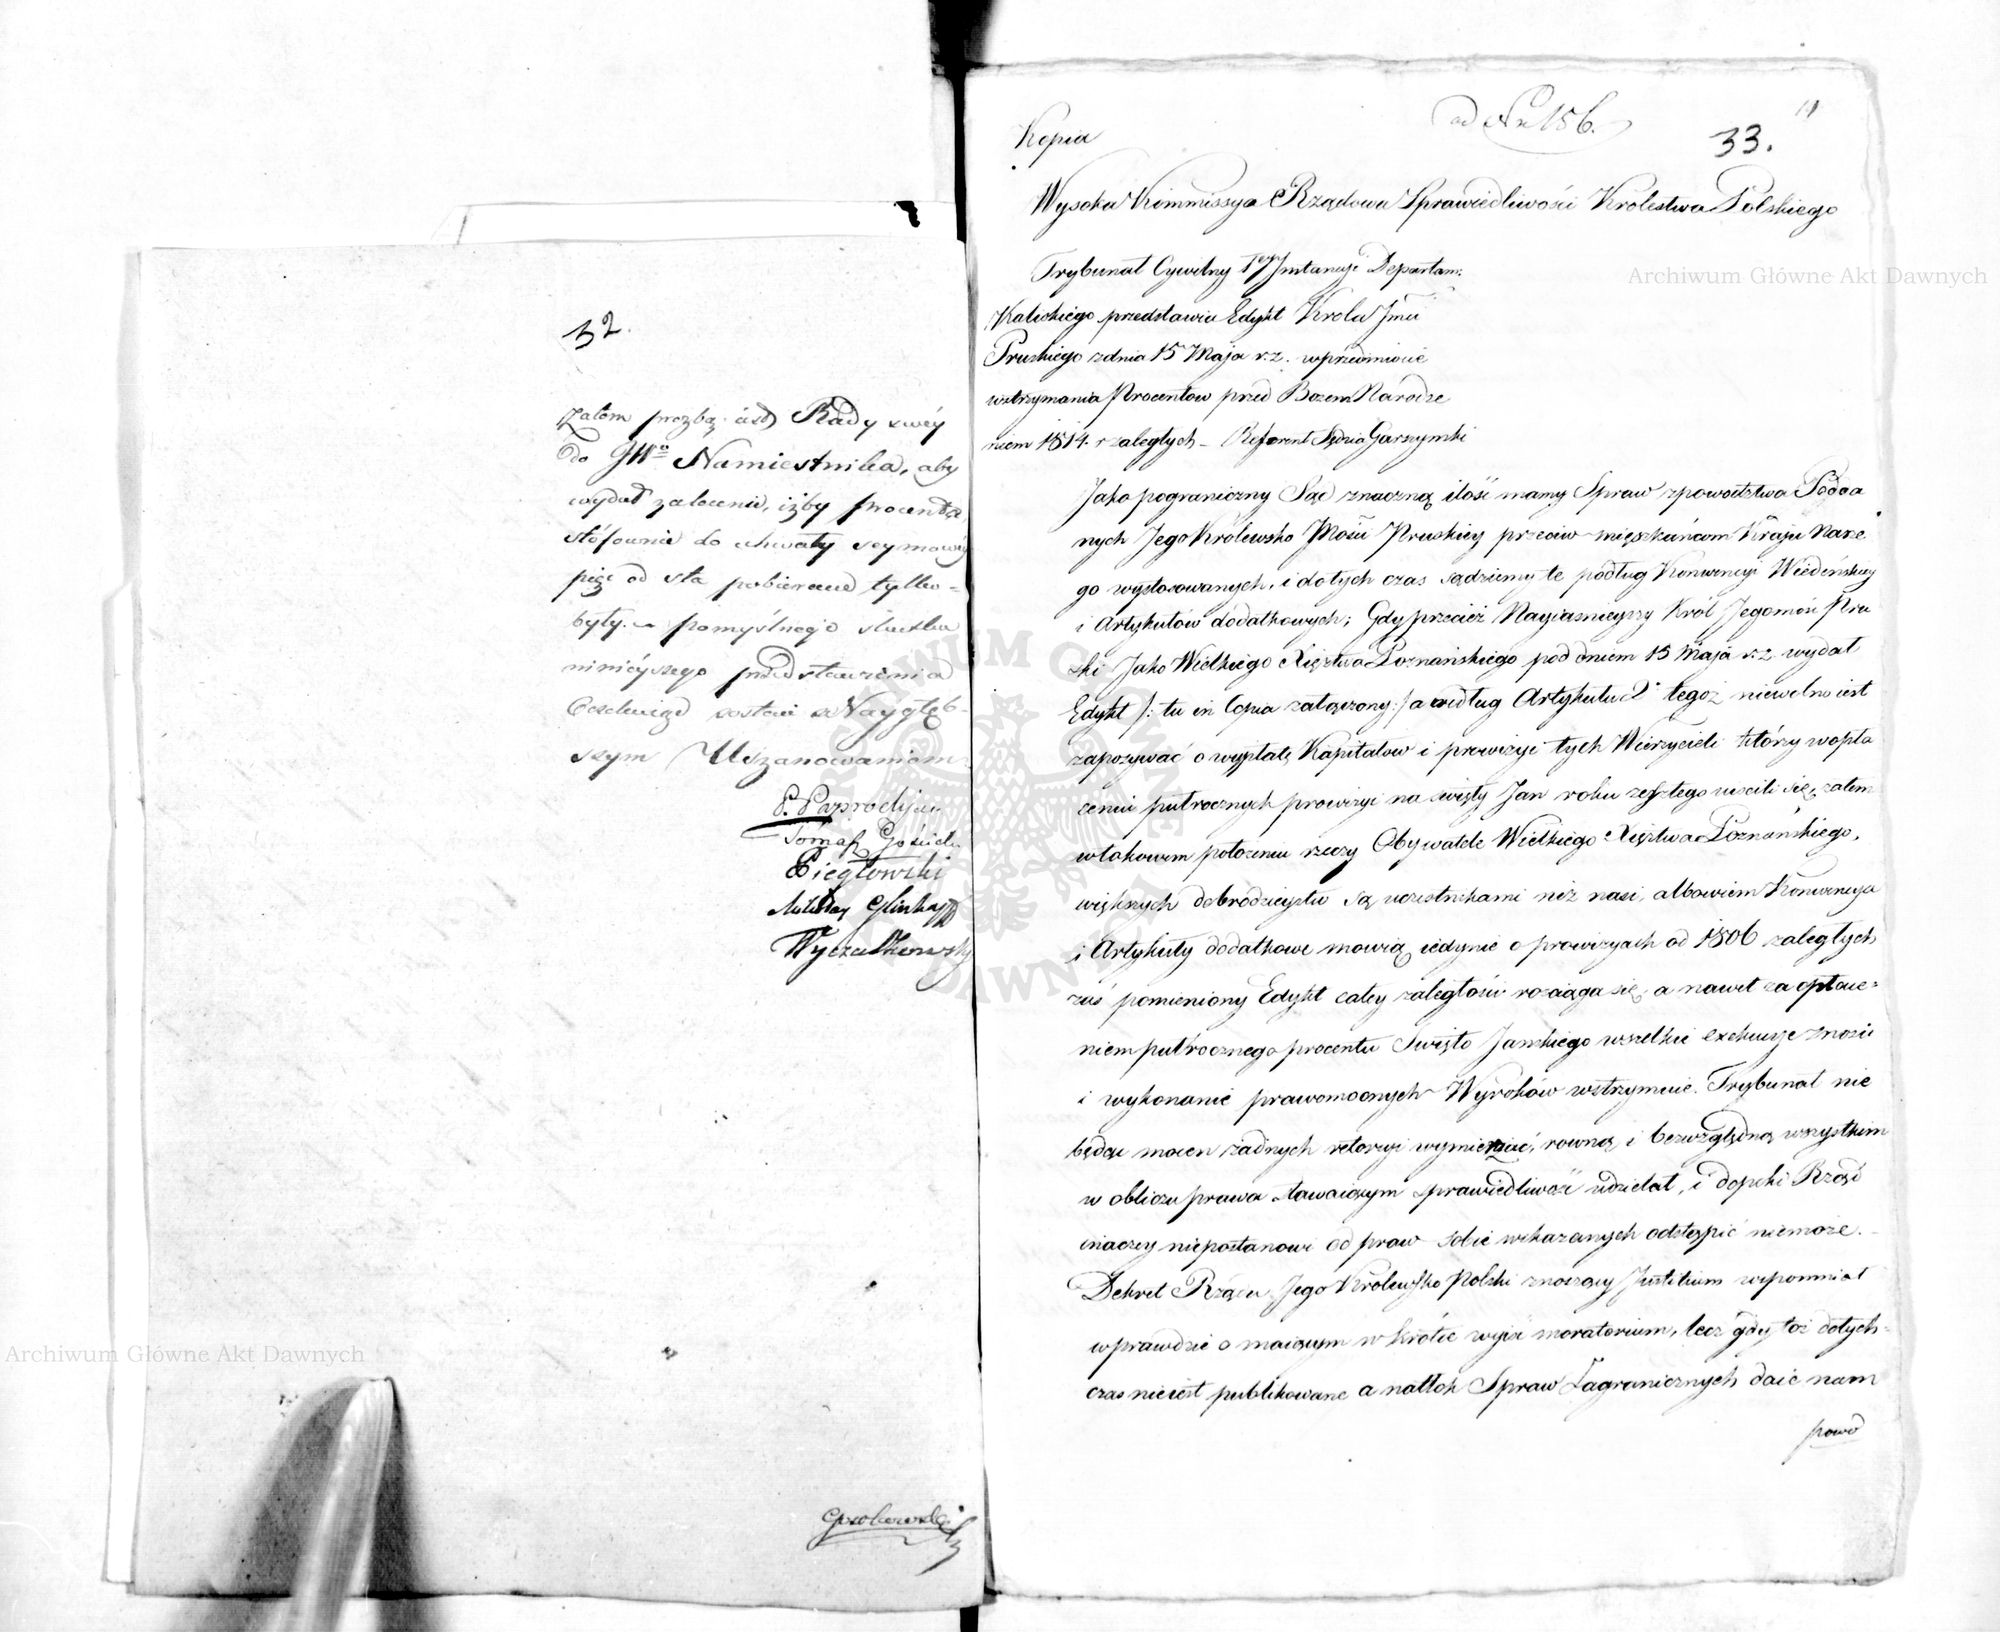 32.
zatem prozbą ást Rady swéy
do JWo Namiestnika, aby
wydał zalecenie, iżby procenta
stósownie do uchwały seymowéy
pięć od sta pobierane tylko
były. pomyślnego skutku
ninieyszego przedstawienia
Oczekuiąc zostaie z Naygłęb-
szym Uszanowaniem
Tomasz
Biegłowski
Mikołay Glinka
Wyczałkowski
ad Nr 156.
11
33.
Kopia
Wysoka Kommissya Rządowa Sprawiedliwości Królestwa Polskiego
Trybunał Cywilny 1ey Instancyi Departam:
Kaliskiego przedstawia Edykt Krola Jmci
Pruskiego z dnia 15 Maja r. z. w przedmiocie
wstrzymania Procentow przed Bozem Narodze
niem 1814. r zaległych – Referent Sędzia Garszynski
Jako pograniczny Sąd znaczną ilość mamy Spraw z powodztwa Podda
nych Jego Królewsko Mości Pruskiey przeciw mięszkańcom Kraju Nasze
go wystosowanych, i dotych czas sądziemy te podług Konwencyi Wiedeńskiey
i Artykułów dódatkowych; Gdy przecież Nayiasnieyszy Król Jegomość Pru
ski Jako Wielkiego Xięztwa Poznańskiego pod dniem 15 Maja r. z. wydał
Edykt /: tu in Copia załączony :/ a według Artykułu 2o tegoż niewolno iest
zapozywać o wypłatę Kapitałow i prowizyi tych Wierzycieli którzy w opła
ceniu pułrocznych prowizyi na święty Jan roku zeszłego uiscili się, zatem
w takowem położeniu rzeczy Obywatele Wielkiego Xięztwa Poznańskiego,
większych dobrodzieystw są uczestnikami niż nasi, albowiem Konwencya
i Artykuły dodatkowe mowią iedynie o prowizyach od 1806 zaległych
zaś pomieniony Edykt całey zaległości rozciąga się, a nawet za opłace-
niem pułrocznego procentu Swięto Janskiego wszelkie exekucye znosi
i wykonanie prawomocnych Wyroków wstrzymuie. Trybunał nie
będąc mocen żadnych retorsyi wymierzać, rowną i bezwzględną wszystkim
w obliczu prawa stawaiącym sprawiedliwość udzielał, i dopóki Rząd
inaczey niepostanowi od praw sobie wskazanych odstąpić niemoże. –
Dekret Rządu Jego Królewsko Polski znoszący Justitium wspomniał
wprawdzie o maiącym w krótce wyiść moratorium, lecz gdy toż dotych-
czas nieiest publikowane a natłok Spraw Zagranicznych daie nam
powód